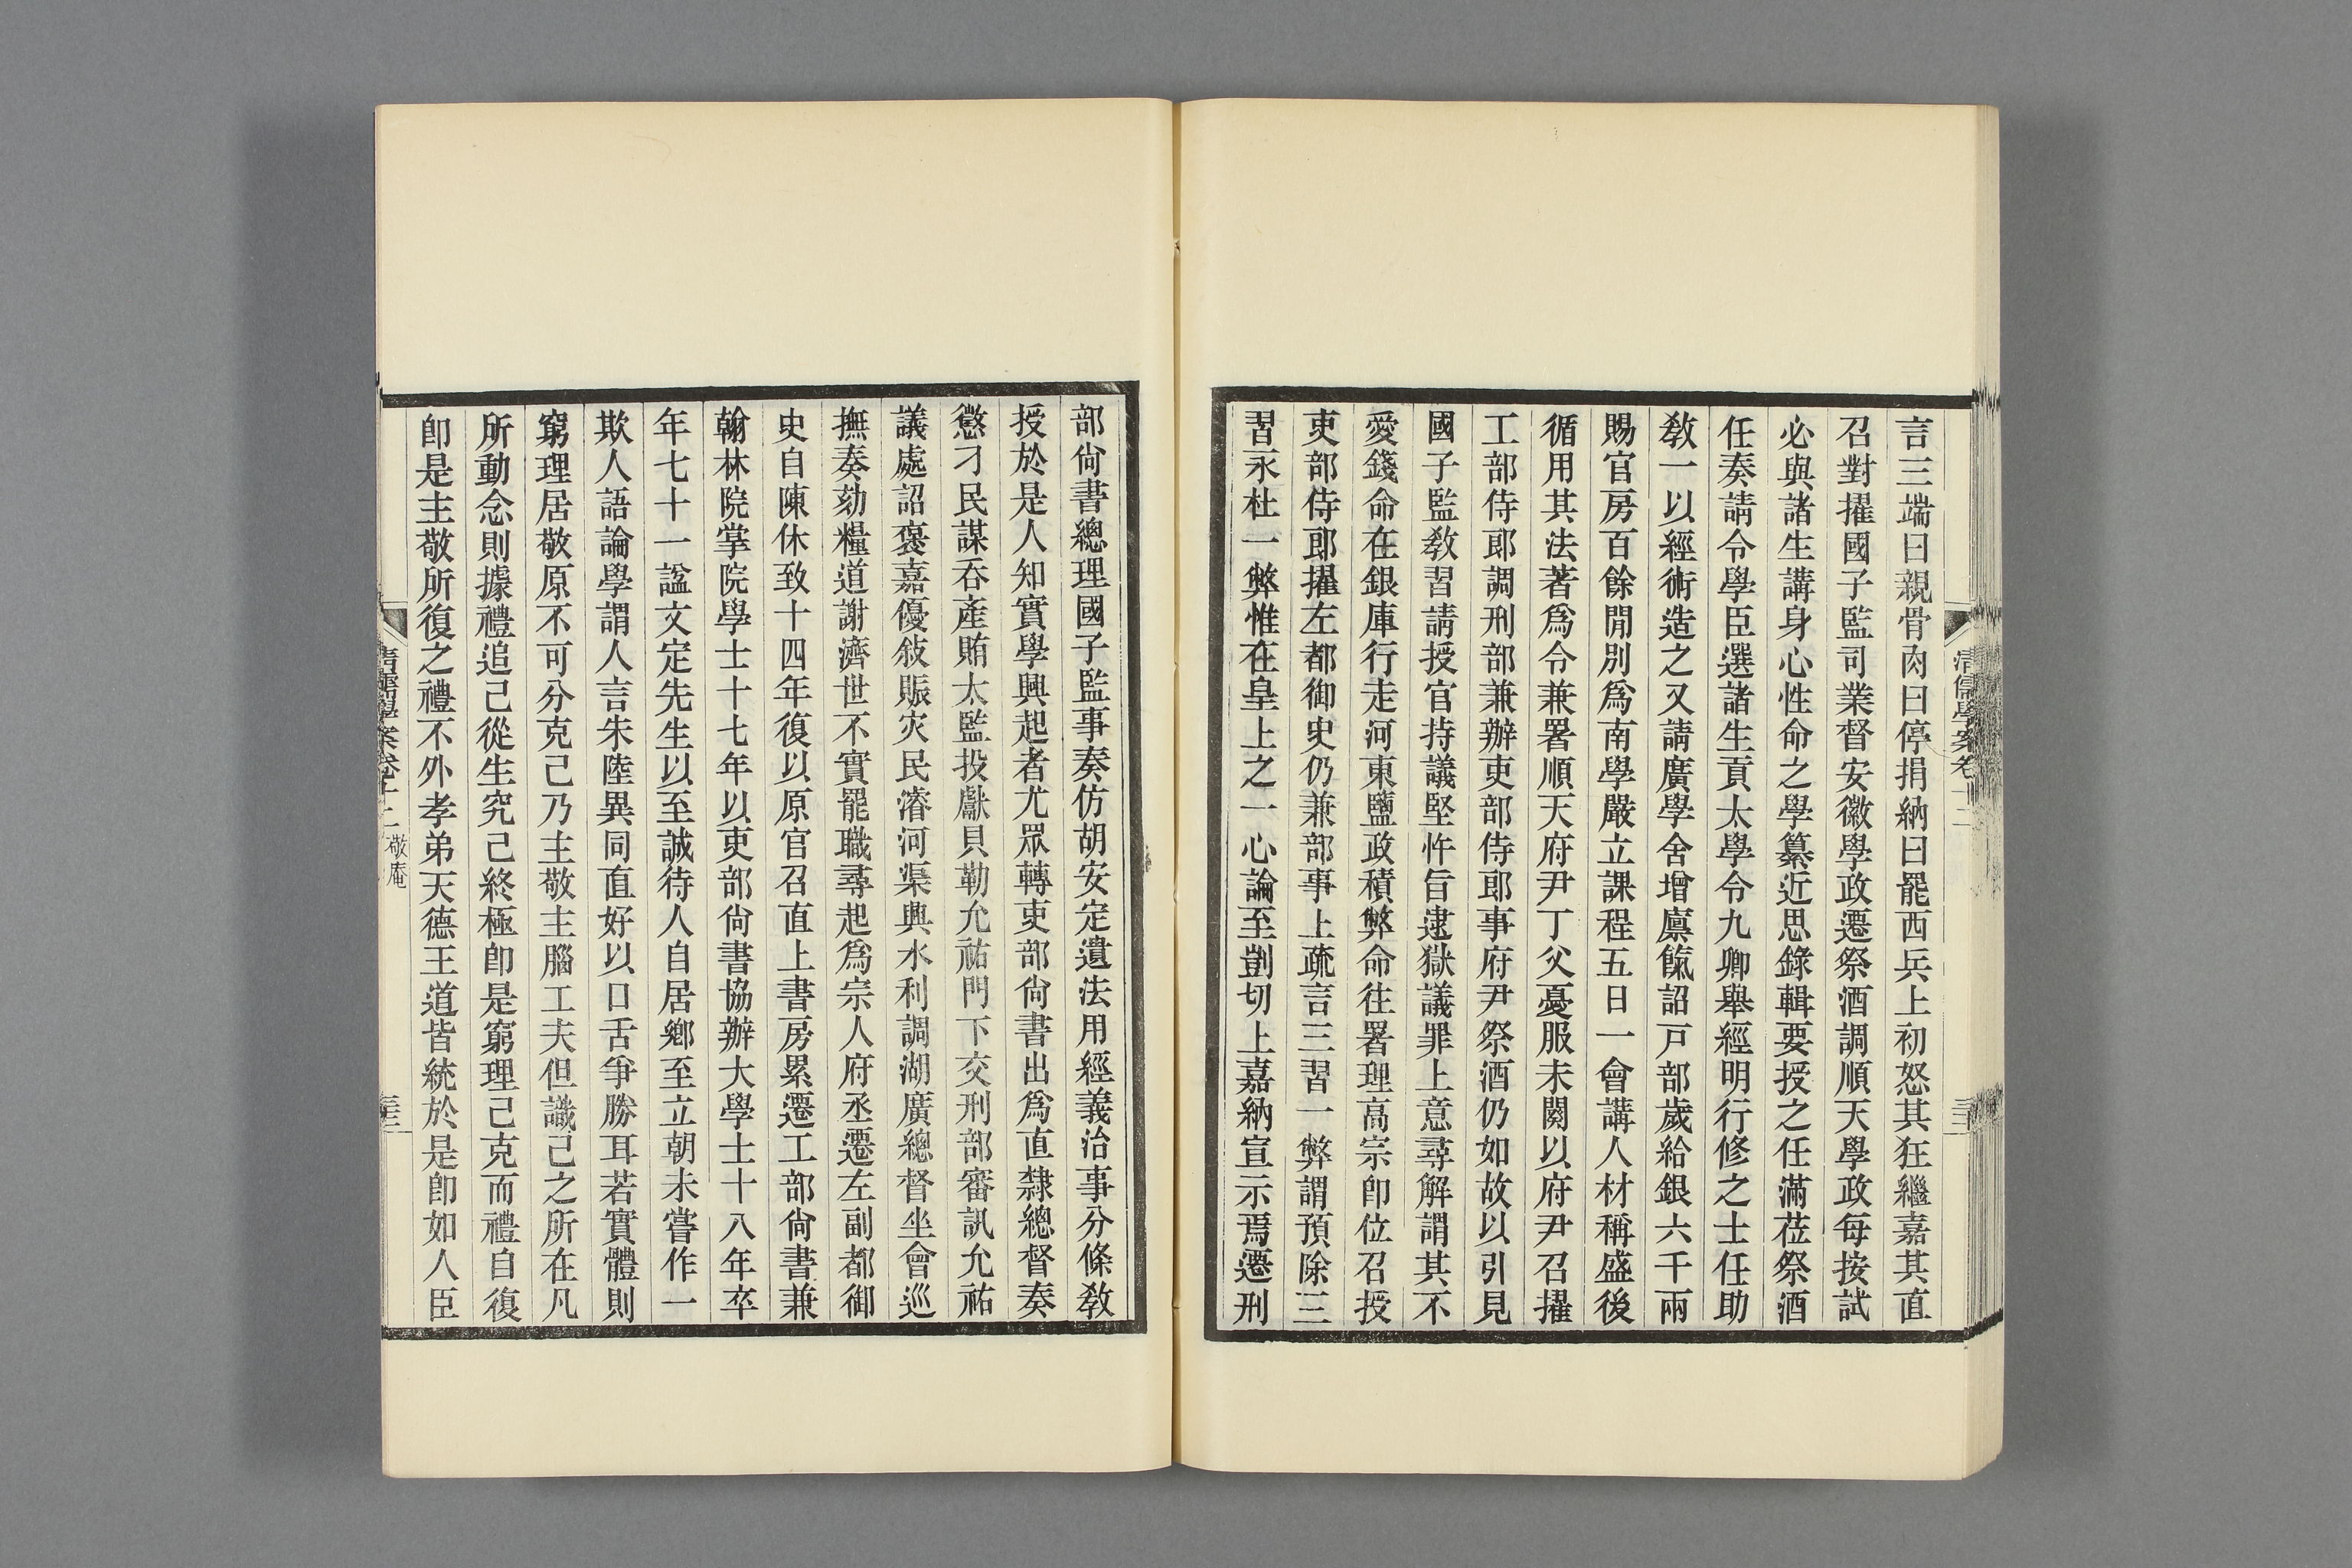 言三端曰親骨肉曰停捐納曰罷西兵上初怒其狂繼嘉其直
召對擢國子監司業督安徽學政遷祭酒調順天學政每按試
必與諸生講身心性命之學纂近思錄輯要授之任滿莅祭酒
任奏請令學臣選諸生貢太學令九卿舉經明行修之士任助
敎一以經術造之又請廣學舍增廪餼詔戸部歲給銀六千兩
賜官房百餘閒別爲南學嚴立課程五日一會講人材稱盛後
循用其法著爲令兼署順天府尹丁父憂服未闋以府尹召擢
工部侍郎調刑部兼辦吏部侍郎事府尹祭酒仍如故以引見
國子監敎習請授官持議堅忤旨逮獄議罪上意尋解謂其不
愛錢命在銀庫行走河東鹽政積弊命往署理高宗卽位召授
吏部侍郎擢左都御史仍兼部事上疏言三習一弊謂預除三
習永杜一弊惟在皇上之一心論至剴切上嘉納宣示焉遷刑
部尙書總理國子監事奏仿胡安定遺法用經義治事分條敎
授於是人知實學興起者尤眾轉吏部尙書出爲直隸總督奏
懲刁民謀吞產賄太監投獻貝勒允祐門下交刑部審訊允祐
議處詔褒嘉優敍賑灾民濬河渠興水利調湖廣總督坐會巡
撫奏劾糧道謝濟世不實罷職尋起爲宗人府丞遷左副都御
史自陳休致十四年復以原官召直上書房累遷工部尙書兼
翰林院掌院學士十七年以吏部尙書協辦大學士十八年卒
年七十一諡文定先生以至誠待人自居鄕至立朝未嘗作一
欺人語論學謂人言朱陸異同直好以口舌爭勝耳若實體則
窮理居敬原不可分克己乃主敬主腦工夫但識己之所在凡
所動念則據禮追己從生究己終極卽是窮理己克而禮自復
卽是主敬所復之禮不外孝弟天德王道皆統於是卽如人臣
清儒學案卷十二 敬庵